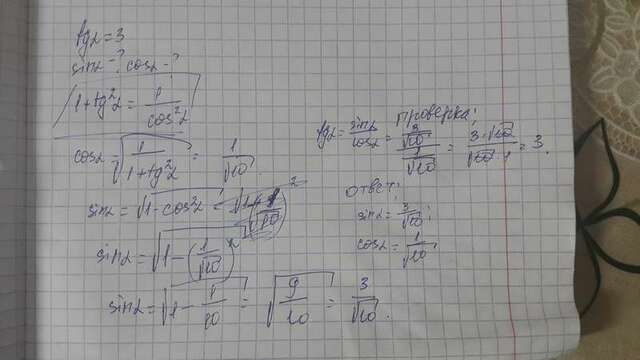 tgα = 3
sinα - ? cosα - ?
1 + tg²α = 1/cos²α
cosα = √(1/(1+tg²α)) = 1/√10
sinα = √(1 - cos²α) =
sinα = √(1 - (1/√10)²)
sinα = √(1 - 1/10) = √(9/10) = 3/√10.
проверка:
tgα = sinα/cosα = (3/√10)/(1/√10) = (3·√10)/(√10·1) = 3.
ответ:
sinα = 3/√10;
cosα = 1/√10.